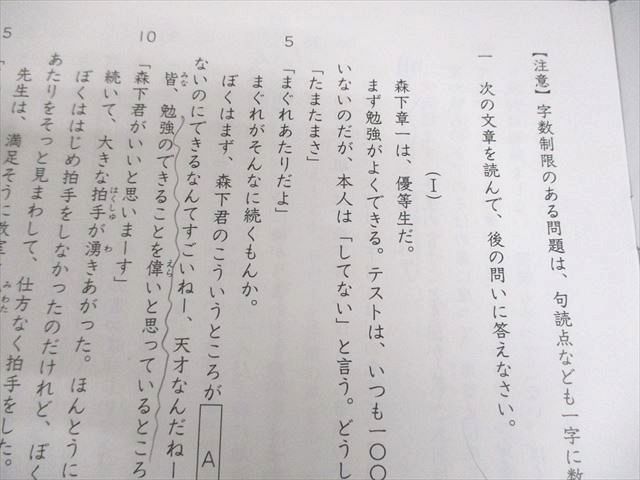 【注意】字数制限のある問題は、句読点なども一字に数
一　次の文章を読んで、後の問いに答えなさい。
（Ⅰ）
森下章一は、優等生だ。
まず勉強がよくできる。テストは、いつも一〇〇
いないのだが、本人は「してない」と言う。どうし
「たまたまさ」
5
「まぐれあたりだよ」
まぐれがそんなに続くもんか。
ぼくはまず、森下君のこういうところが A
ないのにできるなんてすごいねー、天才なんだねー
皆、勉強のできることを偉いと思っているところ
みな
えら
10
「森下君がいいと思いまーす」
続いて、大きな拍手が湧きあがった。ほんとうに
はくしゅ
わ
ぼくははじめ拍手をしなかったのだけれど、ぼく
あたりをそっと見まわして、仕方なく拍手をした。
みわた
先生は、満足そうに教室
5